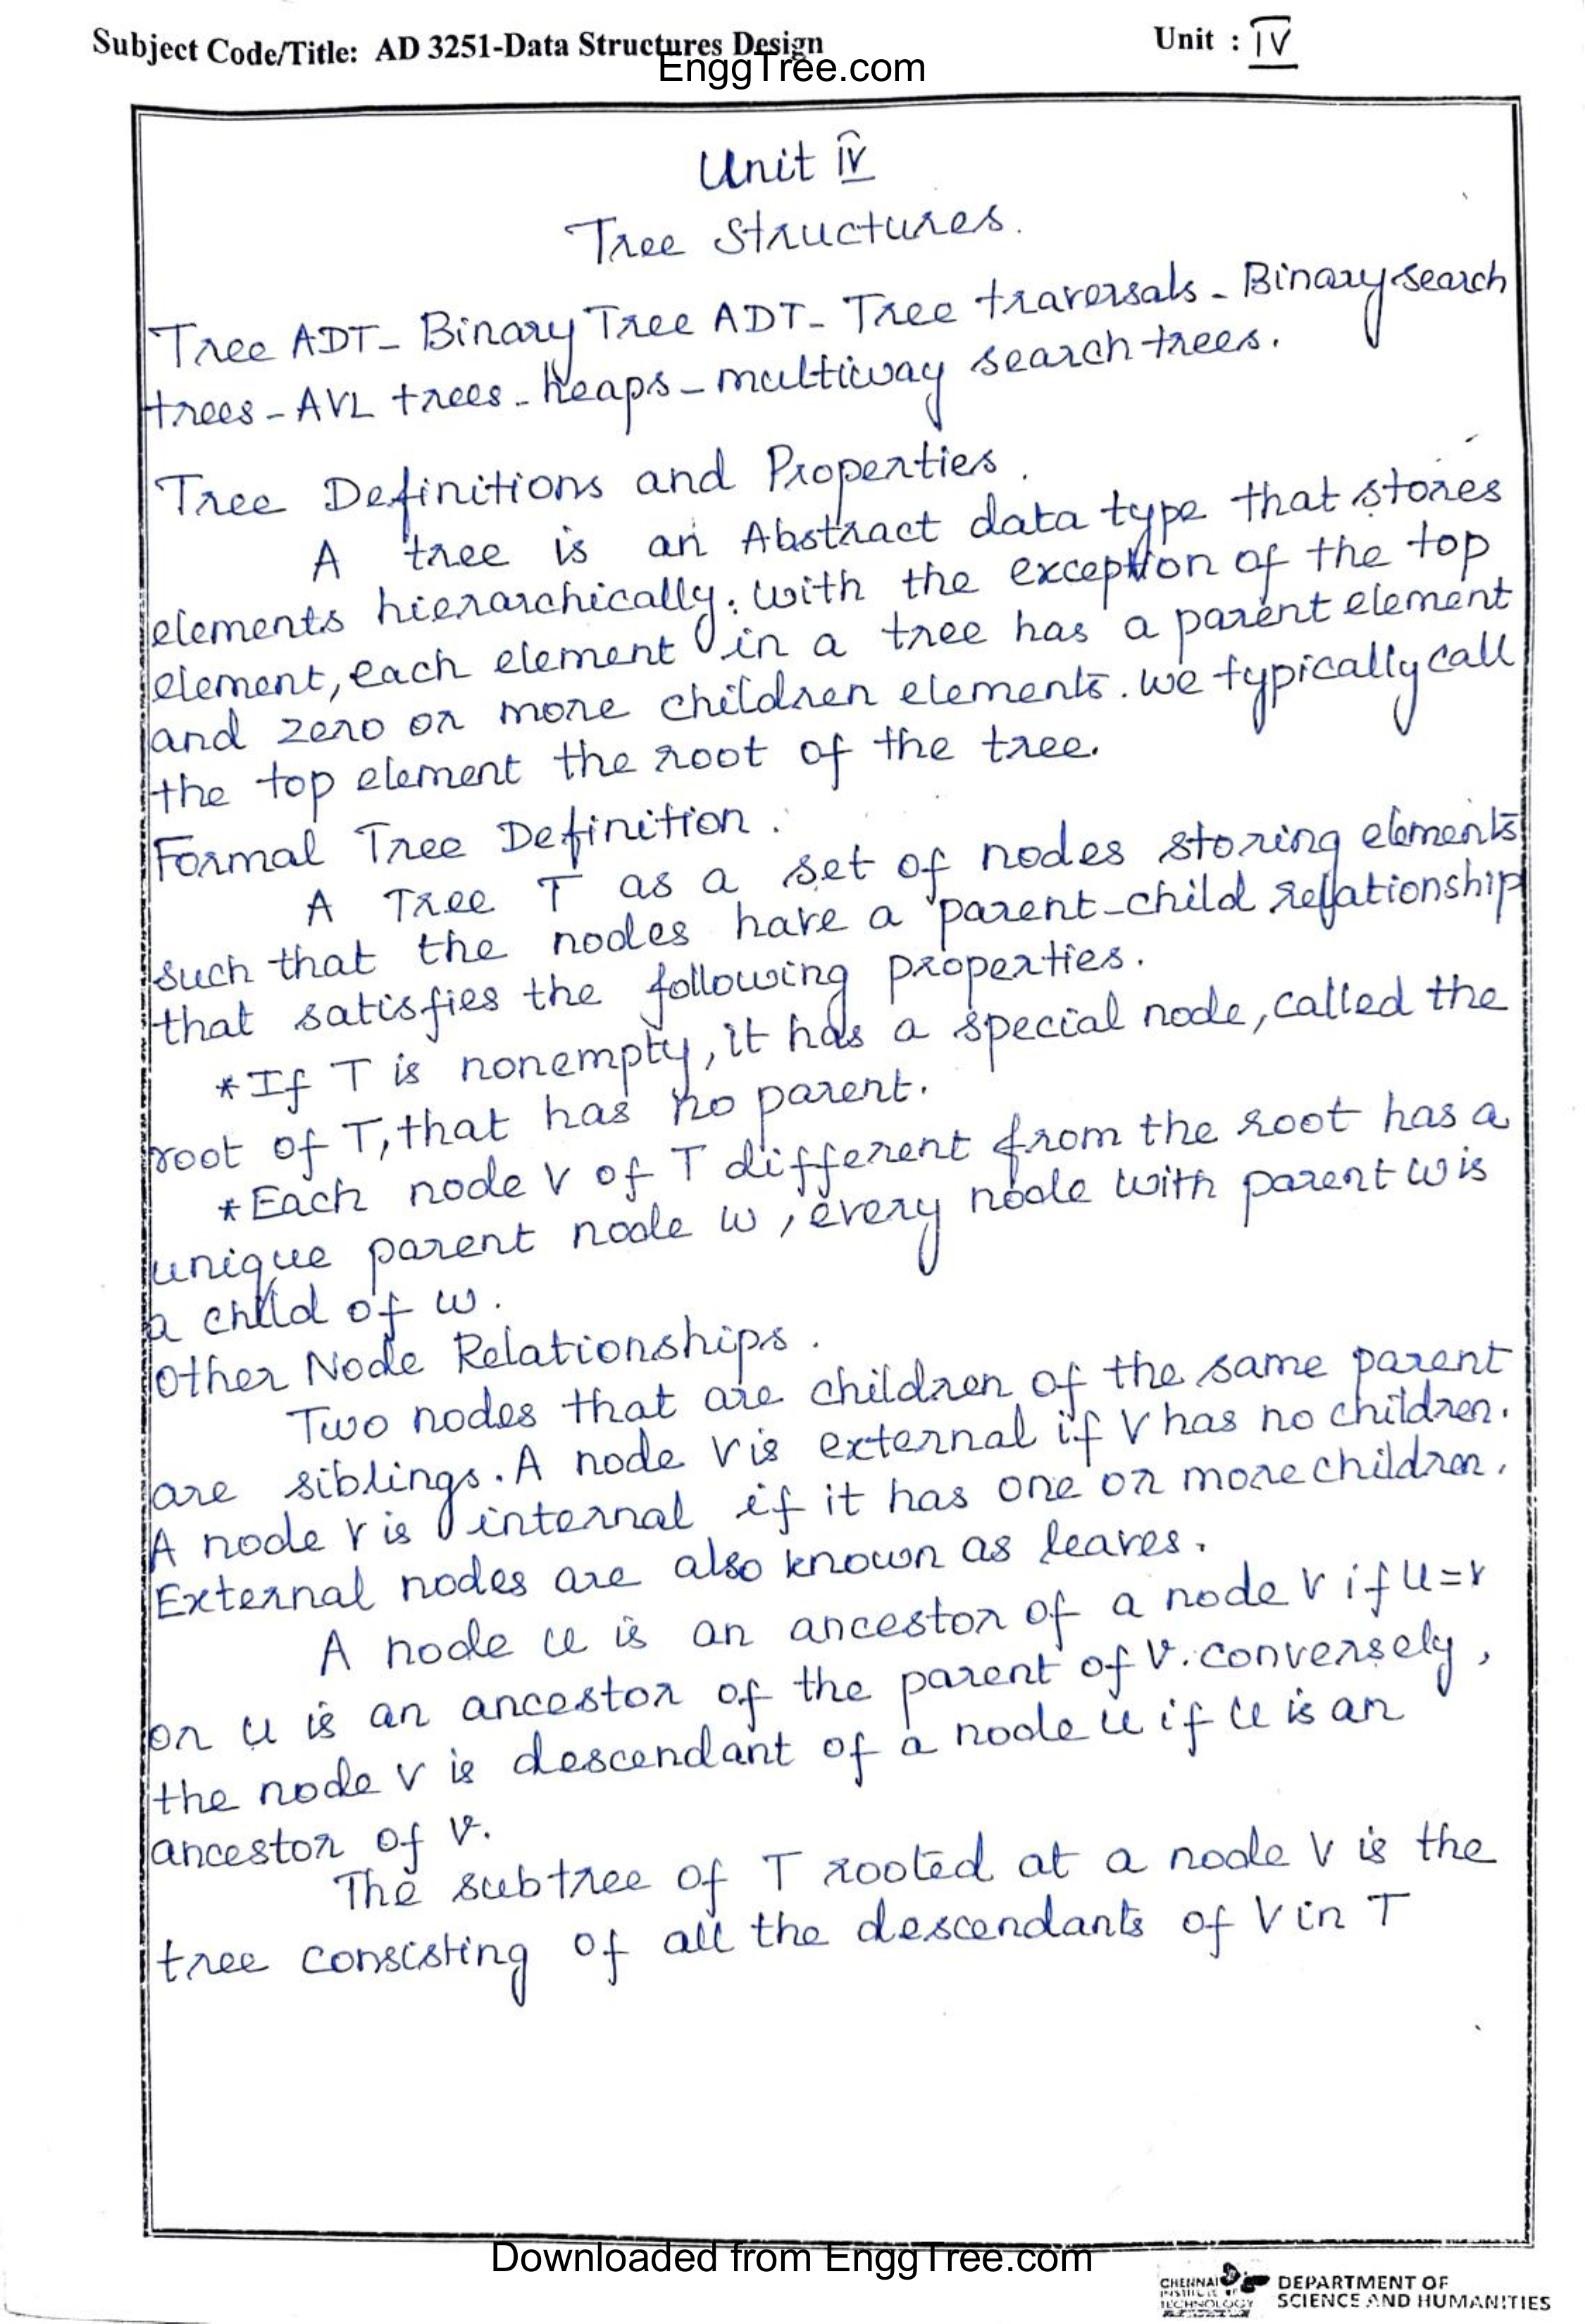 Subject Code/Title: AD 3251-Data Structures Design
Unit : IV
EnggTree.com
Unit IV
Tree Structures.
Tree ADT- Binary Tree ADT- Tree traversals - Binary search
trees - AVL trees - heaps - multiway search trees.
Tree Definitions and Properties.
A tree is an Abstract data type that stores
elements hierarchically. with the exception of the top
element, each element in a tree has a parent element
and zero or more children elements. we typically call
the top element the root of the tree.
Formal Tree Definition.
A Tree T as a set of nodes storing elements
such that the nodes have a parent-child relationship
that satisfies the following properties.
*If T is nonempty, it has a special node, called the
root of T, that has no parent.
*Each node v of T different from the root has a
unique parent node w, every node with parent w is
a child of w.
Other Node Relationships.
Two nodes that are children of the same parent
are siblings. A node v is external if v has no children.
A node v is internal if it has one or more children.
External nodes are also known as leaves.
A node u is an ancestor of a node v if u=v
or u is an ancestor of the parent of v. conversely,
the node v is descendant of a node u if u is an
ancestor of v.
The subtree of T rooted at a node v is the
tree consisting of all the descendants of v in T
Downloaded from EnggTree.com
CHENNAI
INSTITUTE OF
TECHNOLOGY
DEPARTMENT OF
SCIENCE AND HUMANITIES